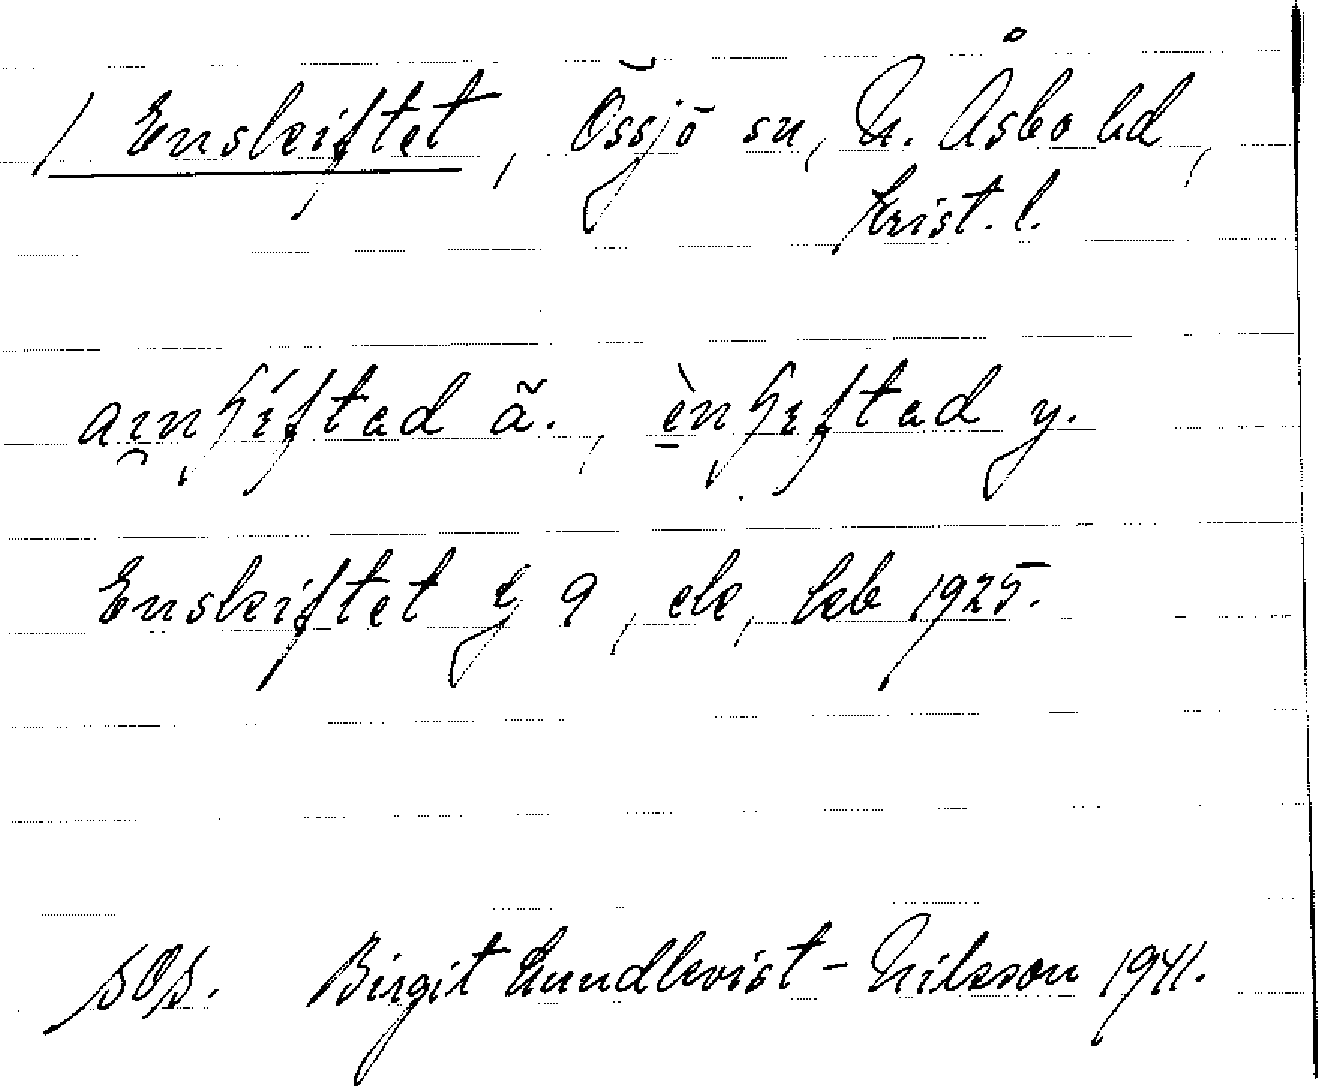 / Enskiftet, Össjö sn, N. Åsbo hd,
Krist. l.
ai̯nʃiftad ä., ènʃiftad y.
Enskiftet g 9, ek, kb 1925.
SOS. Birgit Lundkvist-Nilsson 1941.